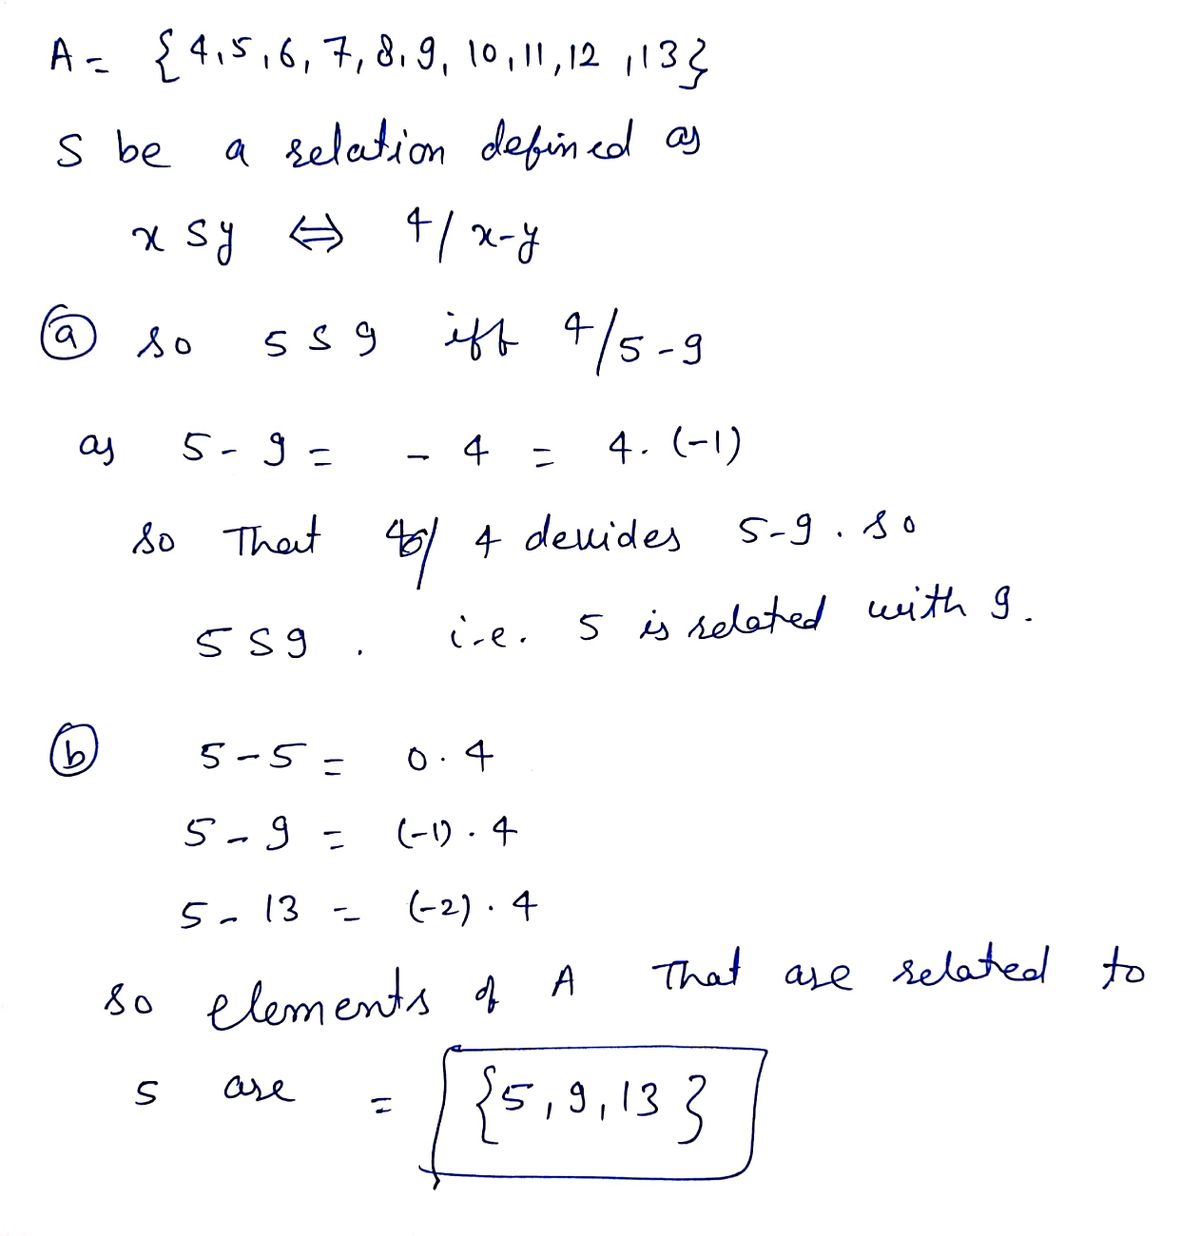 A = {4,5,6,7,8,9,10,11,12,13}
S be a relation defined as
x S y ⇔ 4/x-y
(a) so 5 S 9 iff 4/5-9
as 5-9 = -4 = 4.(-1)
so That 4 devides 5-9. so
5 S 9. i.e. 5 is related with 9.
(b) 5-5 = 0.4
5-9 = (-1).4
5-13 = (-2).4
so elements of A That are related to
5 are = {5,9,13}